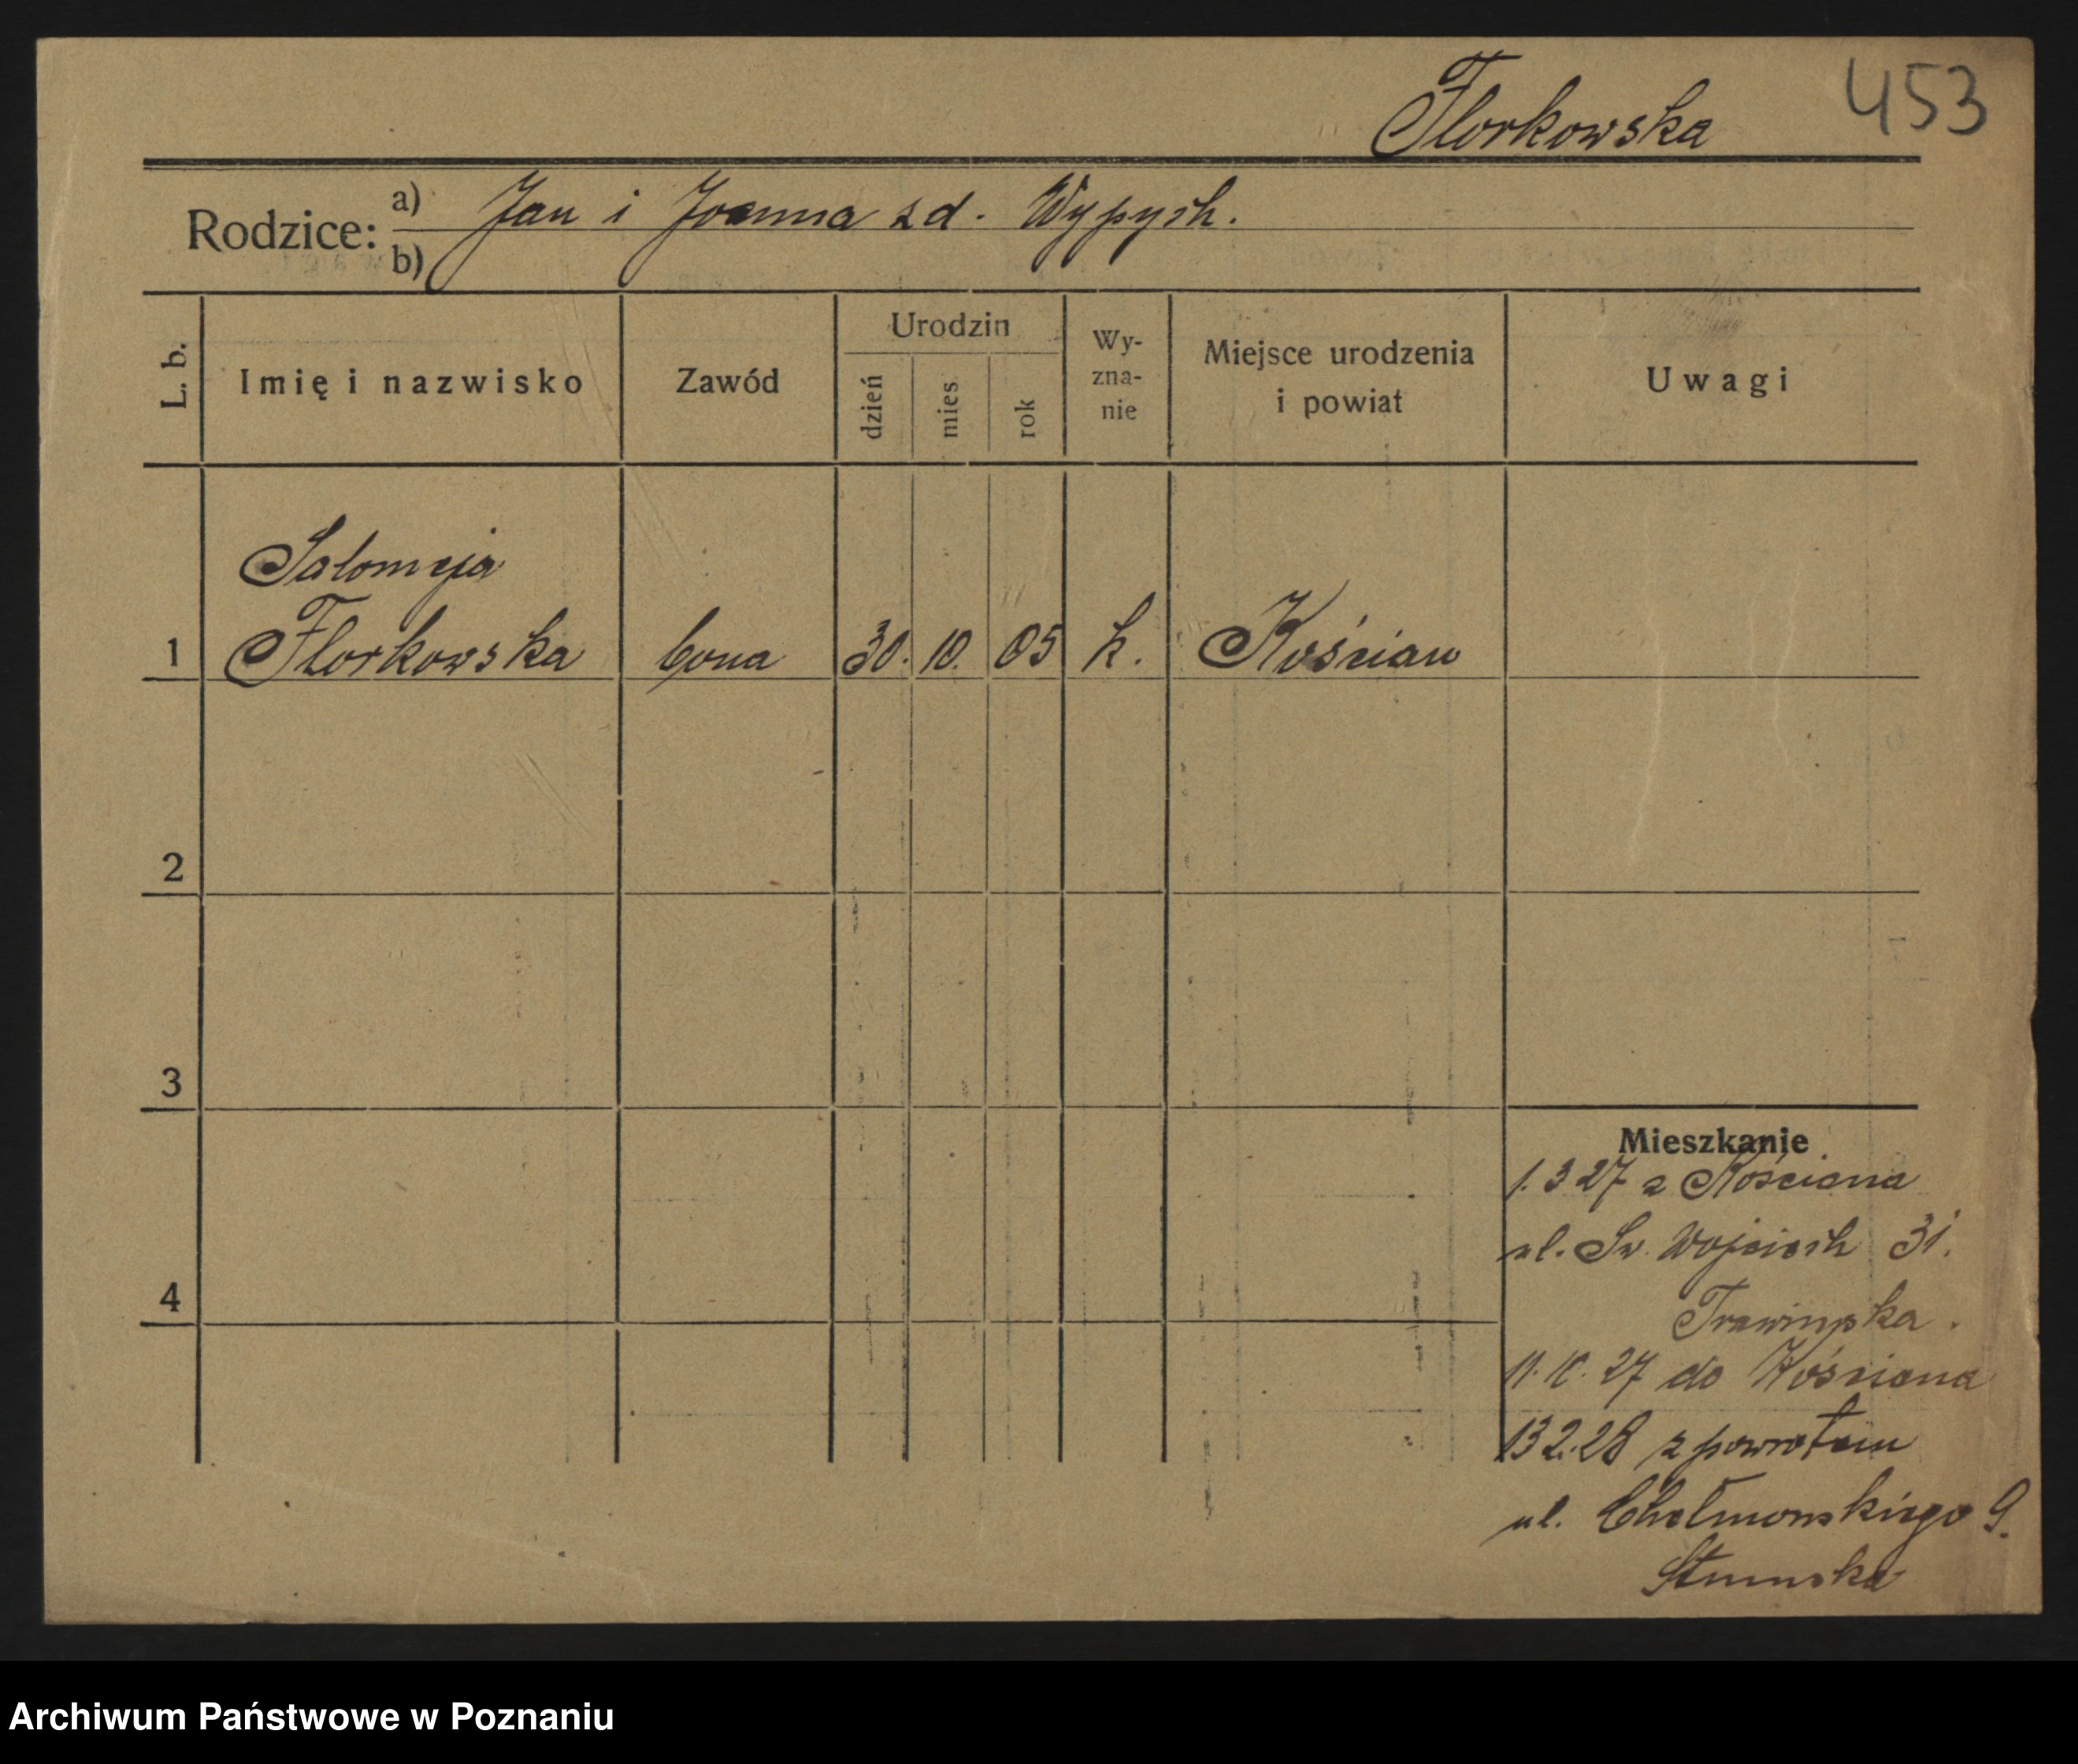 Florkowska 453
Rodzice: a) Jan i Joanna zd. Wypych.
b)
L. b. Imię i nazwisko Zawód Urodzin dzień mies. rok Wy-zna-nie Miejsce urodzenia i powiat Uwagi
Salomeja
1 Florkowska bona 30. 10. 05 k. Kościan
2
3
Mieszkanie
1.3 27 z Kościana
ul. Św. Wojciech 31.
4
11.10.27 do Kościana
13 2.28 z powrotem
ul. Chełmońskiego 9.
Archiwum Państwowe w Poznaniu